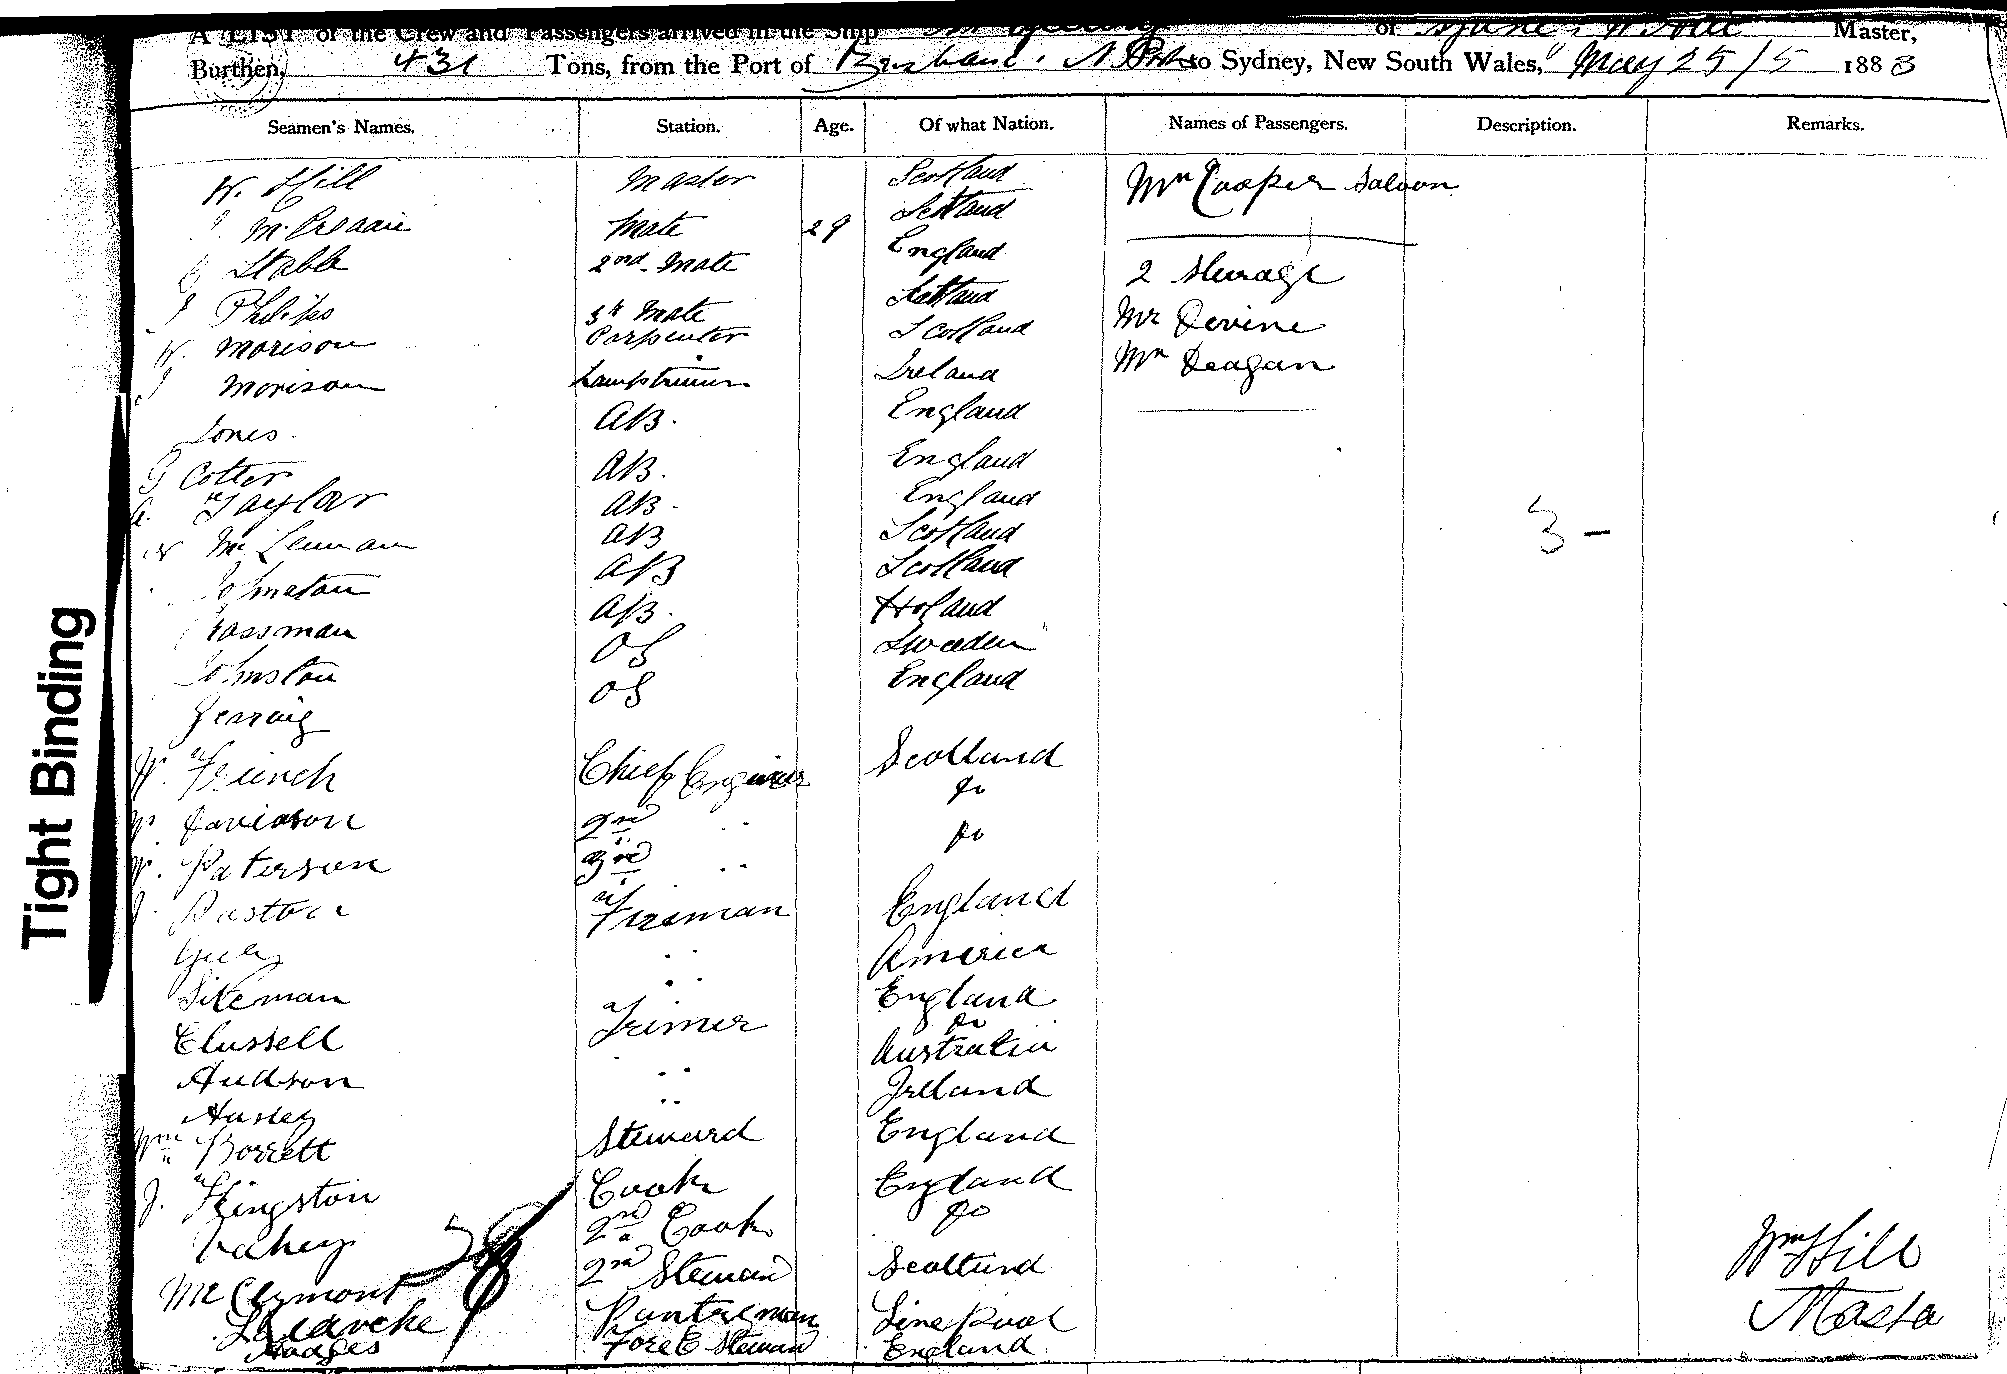 A LIST of the Crew and Passengers arrived in the Ship of Master,
Burthen, 431 Tons, from the Port of Brisbane. to Sydney, New South Wales, May 25/5 1883
Seamen's Names. Station. Age. Of what Nation. Names of Passengers. Description. Remarks.
W. Hill Master Scotland Mr Cooper Saloon
Mate 29 Scotland
Stable 2nd Mate England 2 Sterage
J Philips 3rd Mate Scotland Mr Devine
W. Morison Carpenter Scotland Mr Deagan
J Morison Lamptrimer Ireland
Jones. AB. England
G Cotter AB. England
A. Taylor AB. England 3 -
W McLennan AB Scotland
Johnston AB Scotland
AB. Holand
Johnston OS Sweeden
OS England
W. French Chief Engineer Scotland
Davidson 2nd " Do
W. Paterson 3rd " Do
J. Fireman England
" America
Sileman " England
Clussell Trimer Do
Hudson " Australia
" Ireland
Wm Borrett Steward England
J. Kingston Cook England
Vahey 2nd Cook Do
McClymont 2nd Steward Scotland
Pantreman Line Pool
Hodges Fore C Steward England
28
Wm Hill
Master
Tight Binding